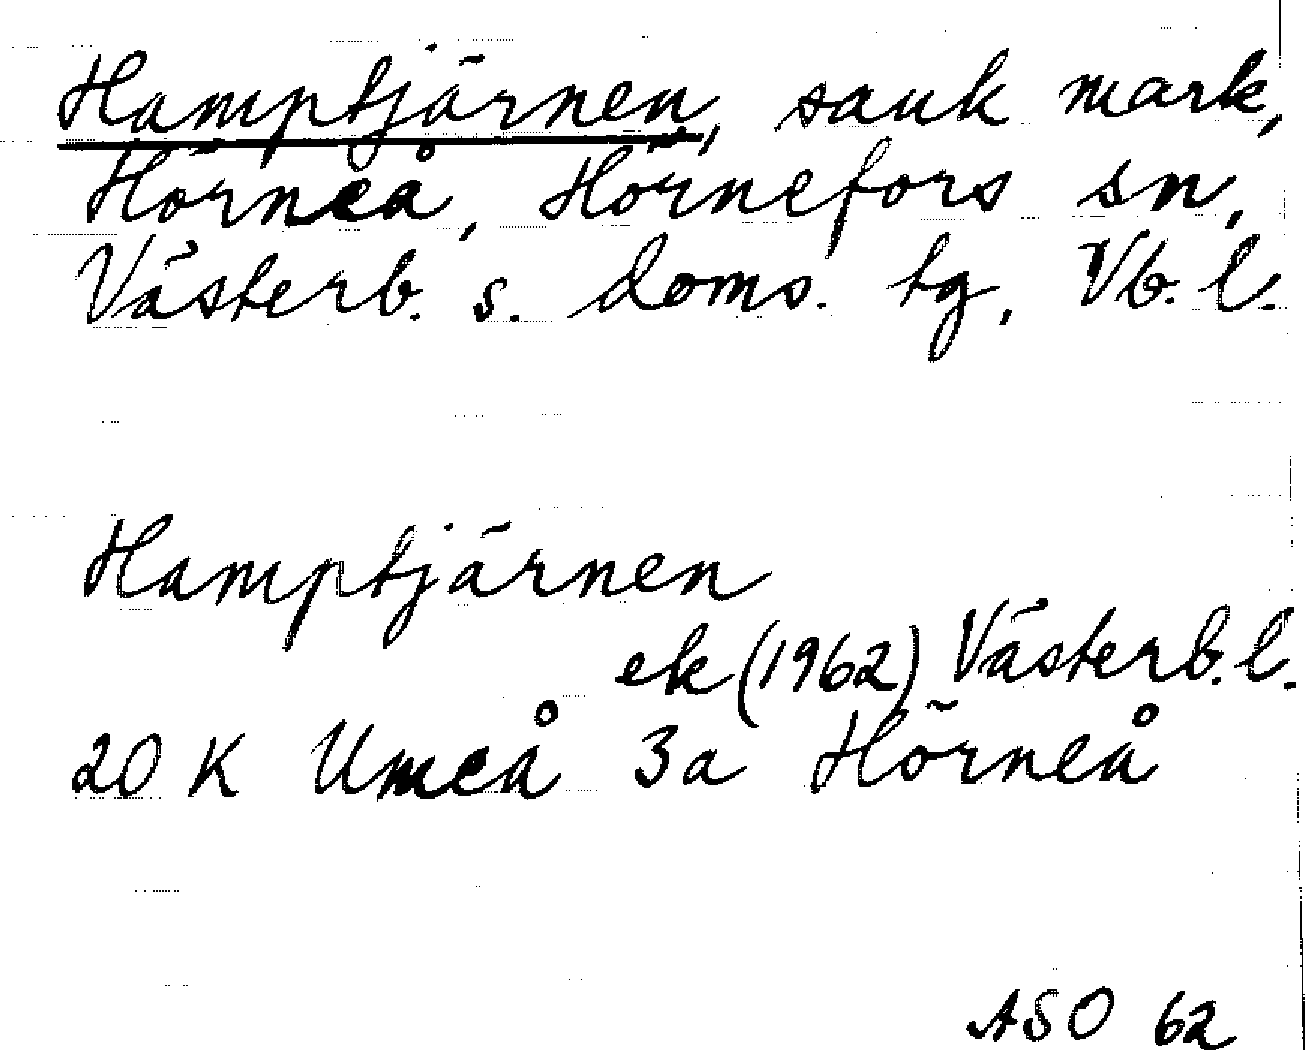 Hamptjärnen, sank mark,
Hörneå, Hörnefors sn,
Västerb. s. doms. tg, Vb. l.
Hamptjärnen
ek (1962) Västerb. l.
20 K Umeå 3a Hörneå
ASO 62